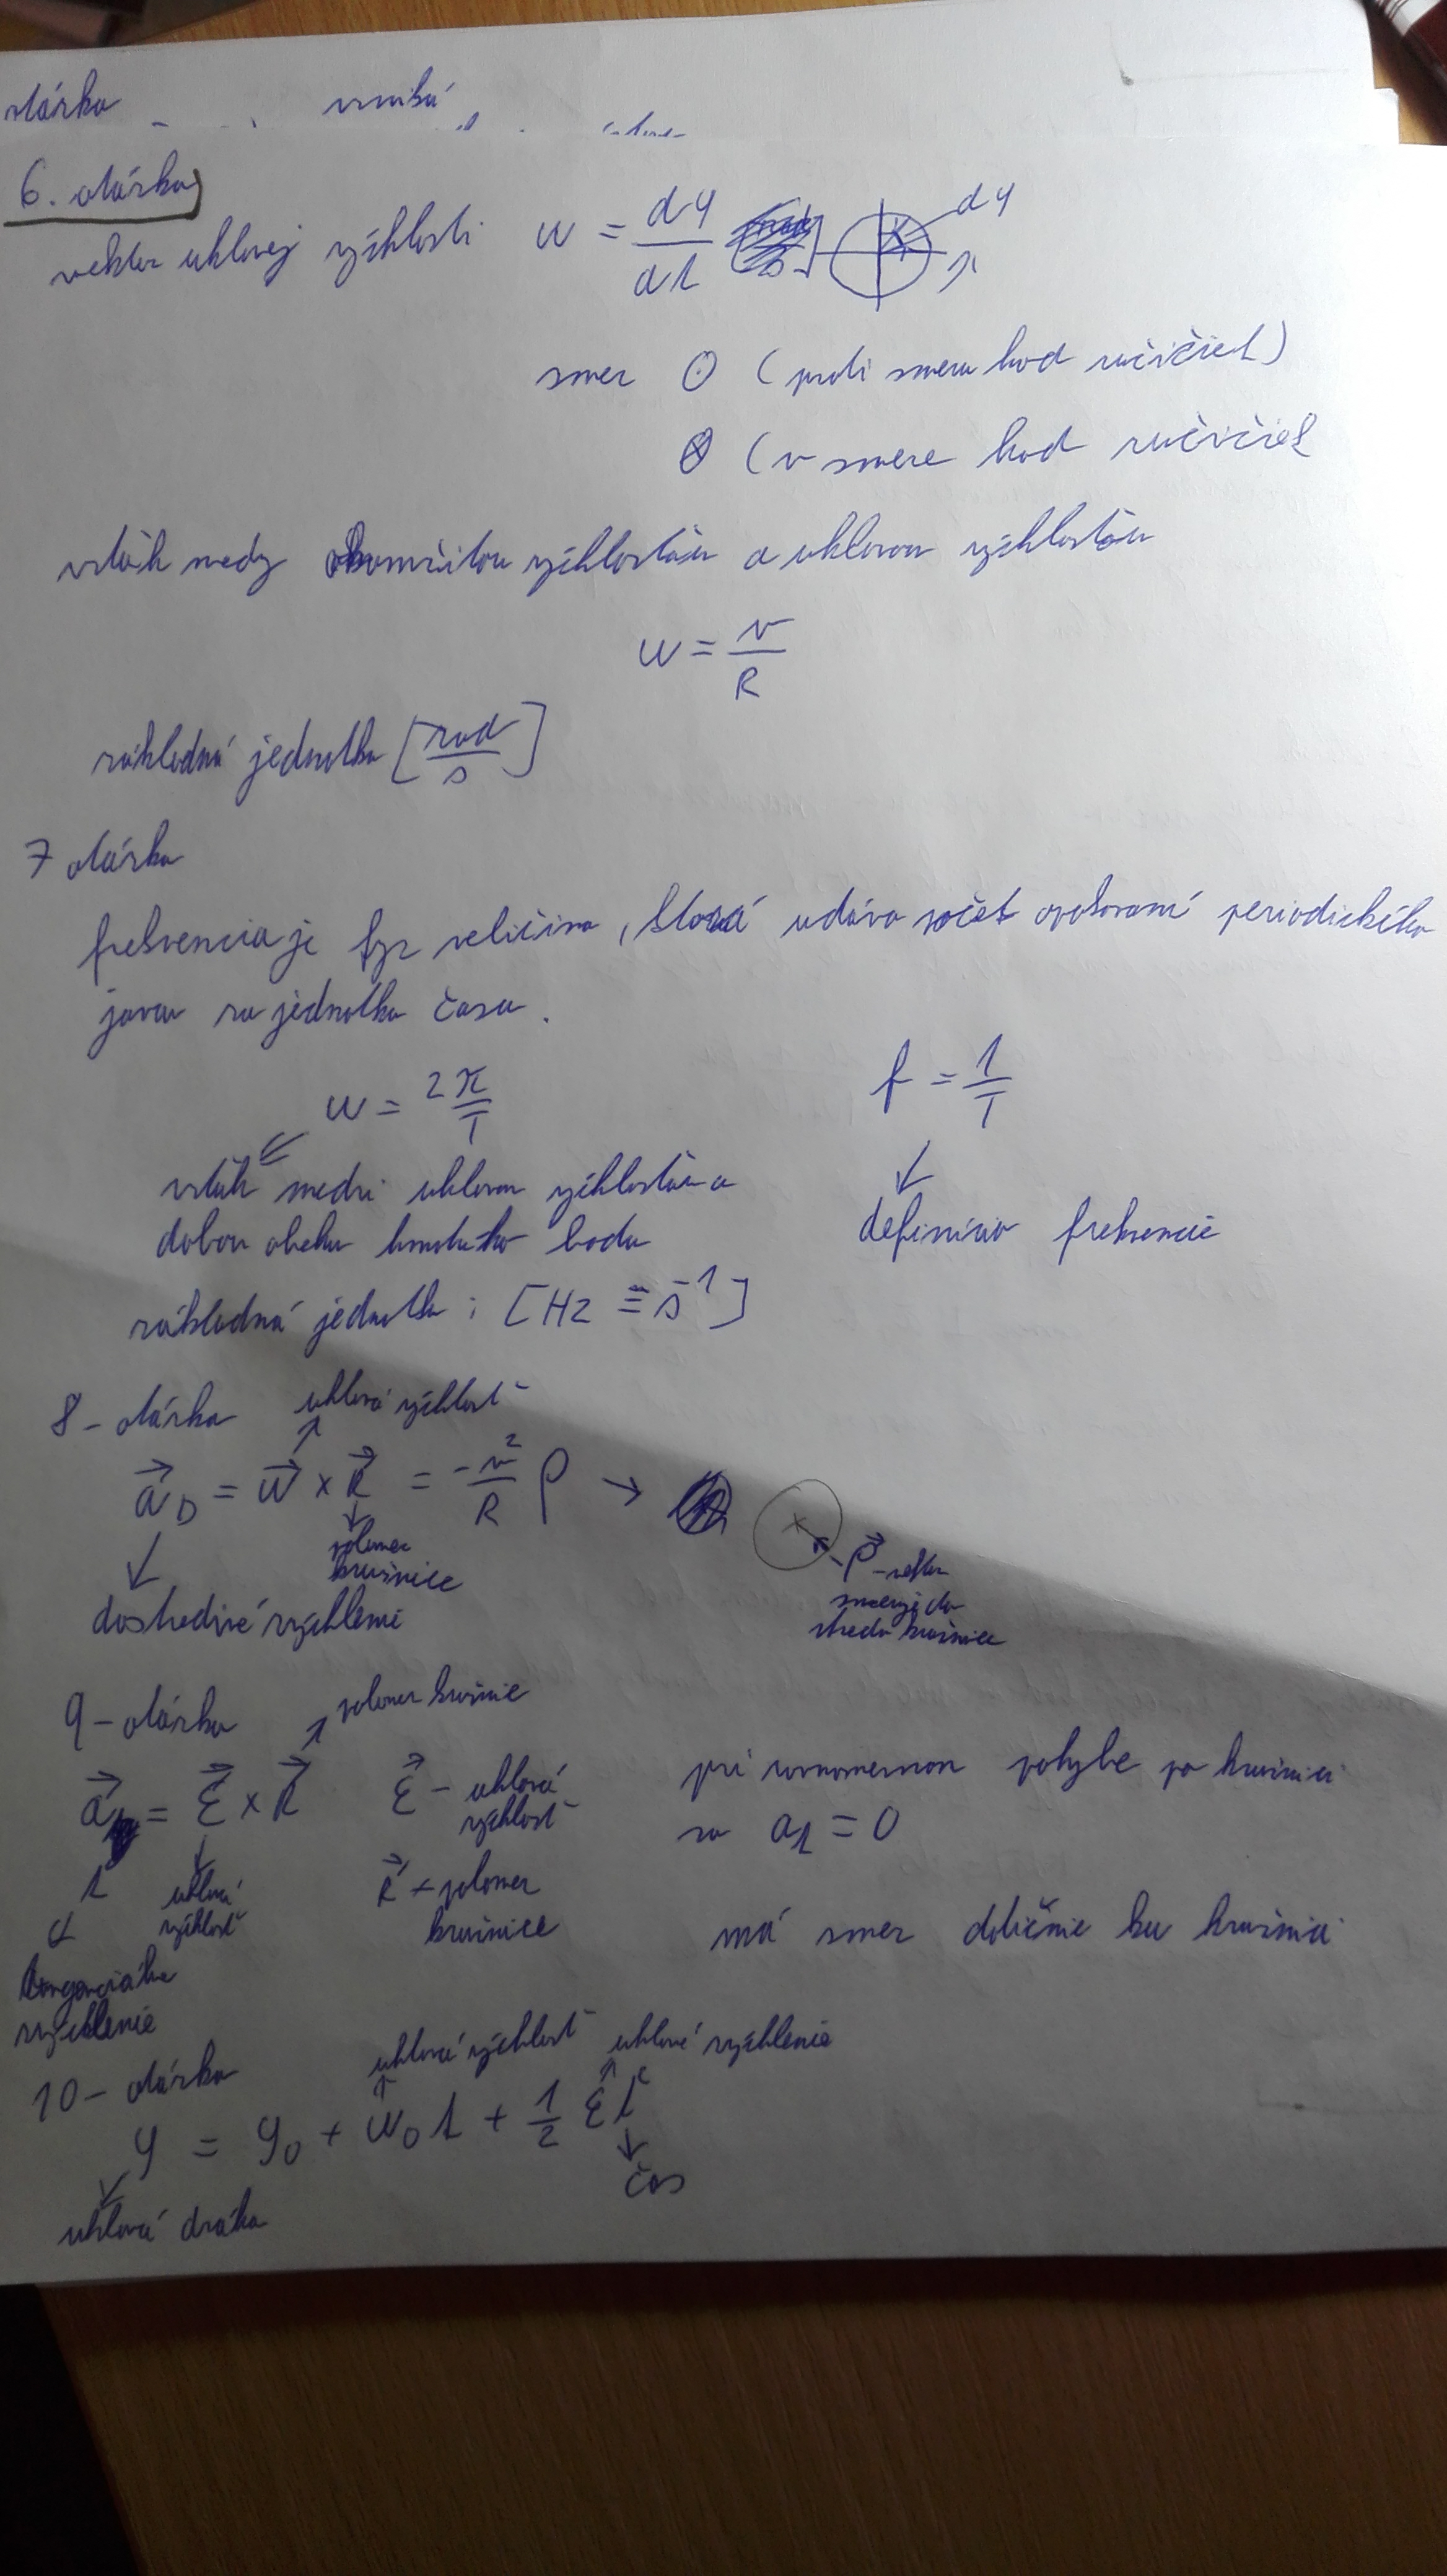 otázka vzniká
6. otázka
vektor uhlovej rýchlosti w = dφ/dt dφ
smer ⊙ (proti smeru hod ručičiek)
⊗ (v smere hod ručičiek
vzťah medzy okamžitou rýchlosťou a uhlovou rýchlosťou
w = v/R
základná jednotka [rad/s]
7 otázka
frekvencia je fyz veličina, ktorá udáva počet opakovaní periodického
javu za jednotku času.
w = 2π/T f = 1/T
vzťah medzi uhlovou rýchlosťou a
dobou obehu hmotného bodu
definícia frekvencie
základná jednotka: [Hz ≡ s⁻¹]
8 - otázka uhlová rýchlosť
a⃗D = w⃗ × R⃗ = -v²/R ρ →
polomer
kružnice
dostredivé zrýchlenie
ρ⃗ - vektor
smerujúci do
stredu kružnice
9 - otázka polomer kružnic
a⃗t = ε⃗ × R⃗
uhlová
rýchlosť
tangenciálne
zrýchlenie
ε⃗ - uhlová
rýchlosť
R⃗ - polomer
kružnice
pri rovnomernom pohybe po kružnici
sa at = 0
má smer dotičnie ku kružnici
10 - otázka uhlová rýchlosť uhlové zrýchlenie
φ = φ0 + w0 t + 1/2 ε t²
čas
uhlová dráha